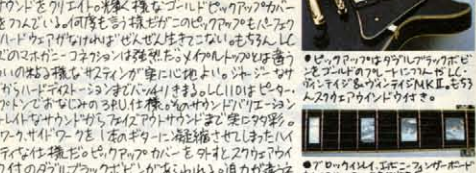 サウンドをクリエイト。光輝く様なゴールドピックアップカバー
をつんでいる。何度も言う様だがこのピックアップもパーフェク
ハードウェアがなければぜんぜん生きてこない。もちろんLC
どのマホガニーコネクションは強烈だ。メイプルトップとは違う
いのある様なサスティンが実に心地よい。ジャージーなサ
からハードディストーションまでバッチリきまる。LC110はピーター
プトンでおなじみの3PU仕様。そのサウンドバリエーション
トレイトなサウンドからフェイズアウトサウンドまで実に多彩。
ワーク、サイドワークを1本のギターに凝縮させてしまったハイ
ティな仕様だ。ピックアップカバーを外すとスクウェアウイ
ク付のダブルブラックボビンがあらわれる。迫力が違って
●ピックアップはダブルブラックボビ
ンをゴールドのプレートにつつんだLC-
ヴィンテイジ&ヴィンテイジMKII。もちろ
んスクウェアウインドウ付き。
●ブロックインレイ、エボニーフィンガーボード